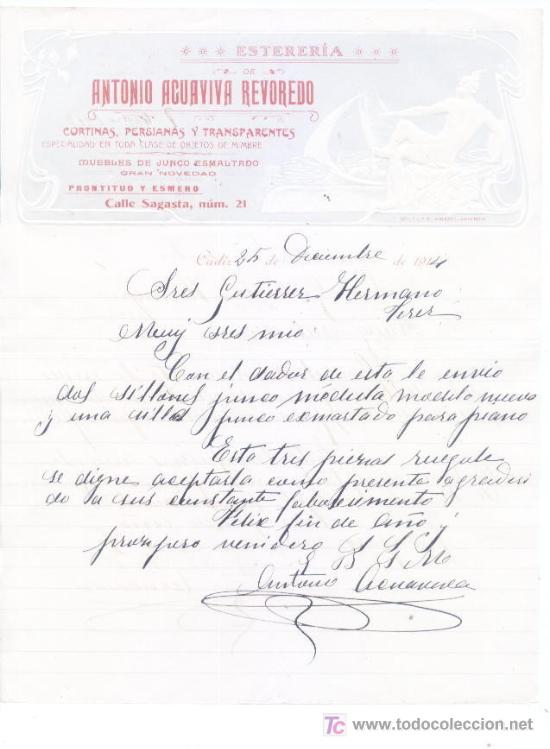 ESTERERÍA
DE
ANTONIO ACUAVIVA REVOREDO
CORTINAS, PERSIANAS Y TRANSPARENTES
ESPECIALIDAD EN TODA CLASE DE OBJETOS DE MIMBRE
MUEBLES DE JUNCO ESMALTADO
GRAN NOVEDAD
PRONTITUD Y ESMERO
Calle Sagasta, núm. 21
Cádiz 25 de Diciembre de 1914
Sres Gutierrez Hermano
Jerez
Muy sres mio
Con el dador de esta le envio
dos sillones junco modelo nuevo
y una silla junco para piano
Esta tres piezas ruegole
se digne aceptarla como presente agradeci
do a sus constante faborecimento
Felix fin de año y
prospero venidero S S
Antonio Acuaviva
todocoleccion
TC
www.todocoleccion.net